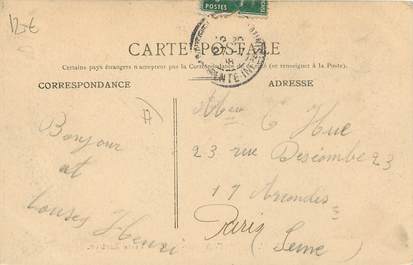 12€
POSTES
CARTE POSTALE
Certains pays étrangers n'acceptent pas la Correspondance (se renseigner à la Poste).
CORRESPONDANCE
ADRESSE
A
Bonjour
et
Henri
Hue
23 rue Descombe 23
17 Arrondis
Paris
(Seine)